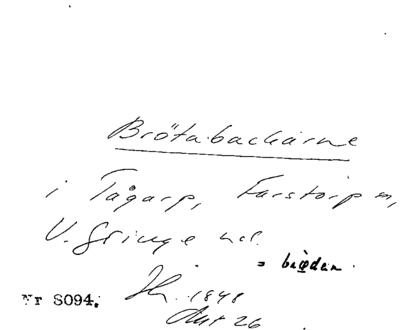 Brötabackarne
i Tågarp, Farstorp sn,
V. Göinge hd.
= bröden.
Nr S094.
1848
Akt 26